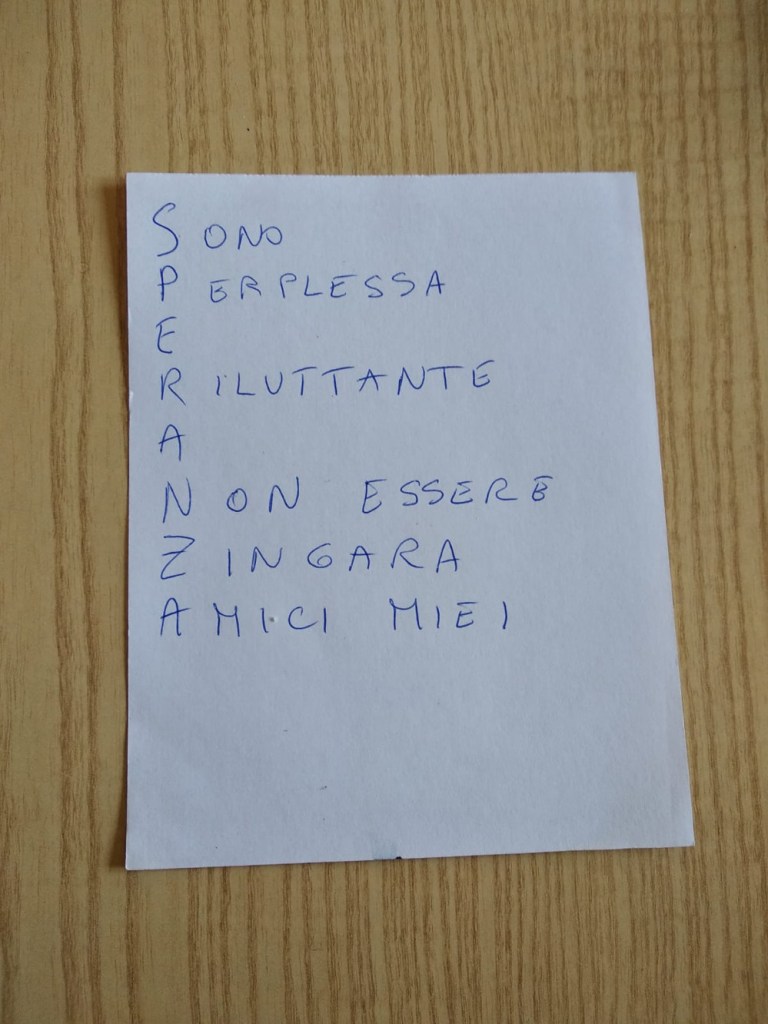 SONO
PERPLESSA
E
RILUTTANTE
A
NON ESSERE
ZINGARA
AMICI MIEI